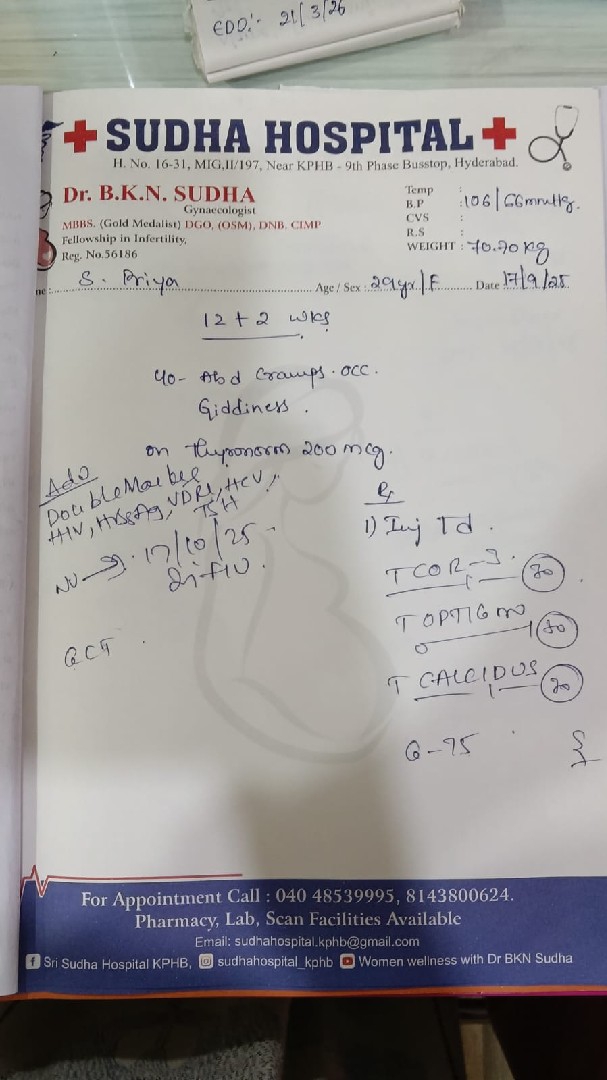 EDD:- 21/3/26
SUDHA HOSPITAL
H. No. 16-31, MIG,II/197, Near KPHB - 9th Phase Busstop, Hyderabad.
Dr. B.K.N. SUDHA
Gynaecologist
MBBS. (Gold Medalist) DGO, (OSM), DNB. CIMP
Fellowship in Infertility,
Reg. No.56186
Temp :
B.P : 106/66mmHg.
CVS :
R.S :
WEIGHT : 70.70 kg
S. Priya Age / Sex : 29yr/F Date 17/9/25
12+2 wks
Abd Cramps. occ.
Giddiness.
on Thyronorm 200mcg.
Adv
Double Marker
HIV, HbsAg, VDRL, HCV,
TSH
17/10/25
GCT.
Rx
1) Inj Td.
T COR-3. 30
T 30
T CALCIDUS 30
For Appointment Call : 040 48539995, 8143800624.
Pharmacy, Lab, Scan Facilities Available
Email: sudhahospital.kphb@gmail.com
Sri Sudha Hospital KPHB, sudhahospital_kphb Women wellness with Dr BKN Sudha